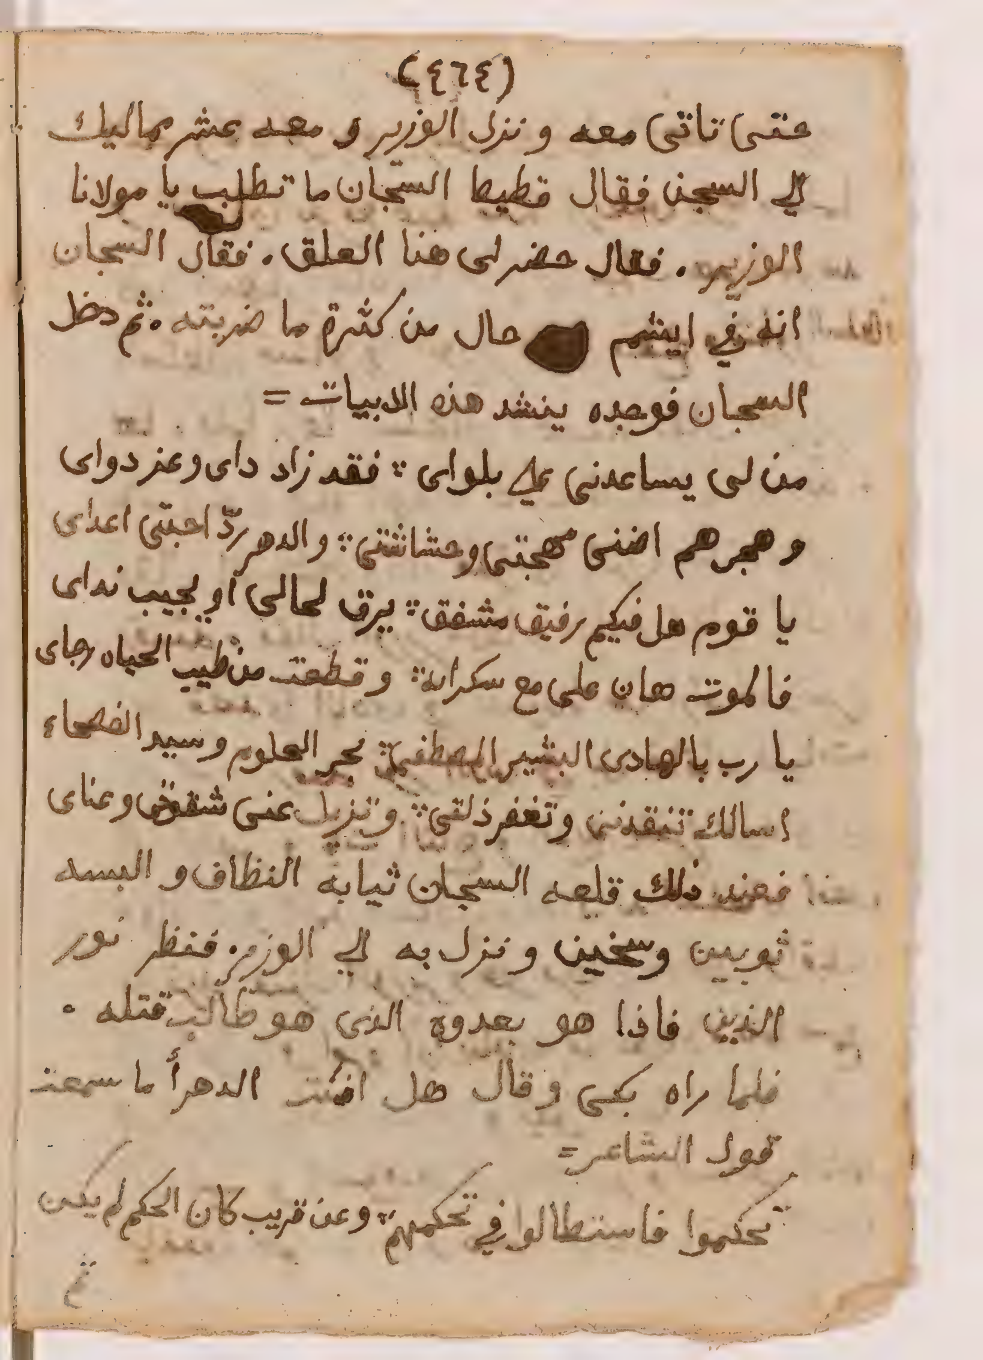 (٤٦٤)
حتى تاتى معه ونزل الوزير و معه عشر مماليك
الي السجن فقال قطيط السجان ما تطلب يا مولانا
الوزير . فقال حضر لى هنا العلق . فقال السجان
انه في ايشم حال من كثرة ما ضربته . ثم دخل
السجان فوجده ينشد هذه الابيات =
من لى يساعدنى علي بلواى ∴ فقد زاد داى وعز دواى
وهجرهم اضنى مهجتى وحشاشتى ∴ والدهر ردّ احبتى اعداى
يا قوم هل فيكم رفيق مشفق ∴ يرق لحالى او يجيب نداى
فالموت هان على مع سكراته ∴ وقطعت من طيب الحياه رجاى
يا رب بالهادى البشير المصطفى ∴ بحر العلوم وسيد الفصحاء
اسالك تنقذنى وتغفر ذلقى ∴ وتزيل عنى شقوتى وعناى
فعند ذلك قلعه السجان ثيابه النظاف و البسه
ثوبين وسخين ونزل به الي الوزير . فنظر نور
الدين فاذا هو بعدوه الذى هو طالب قتله .
فلما راه بكى وقال هل امنت الدهر أ ما سمعت
قول الشاعر =
تحكموا فاستطالوا في تحكمهم ∴ وعن قريب كان الحكم لم يكن
ثم